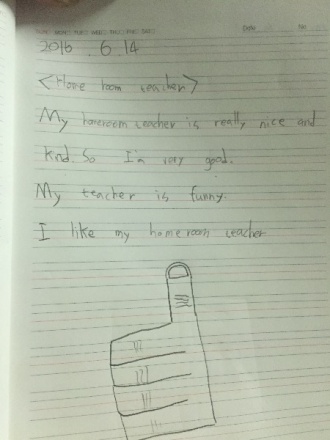 2016. 6. 14
<Home room teacher>
My homeroom teacher is really nice and
kind. So I'm very good.
My teacher is funny.
I like my homeroom teacher